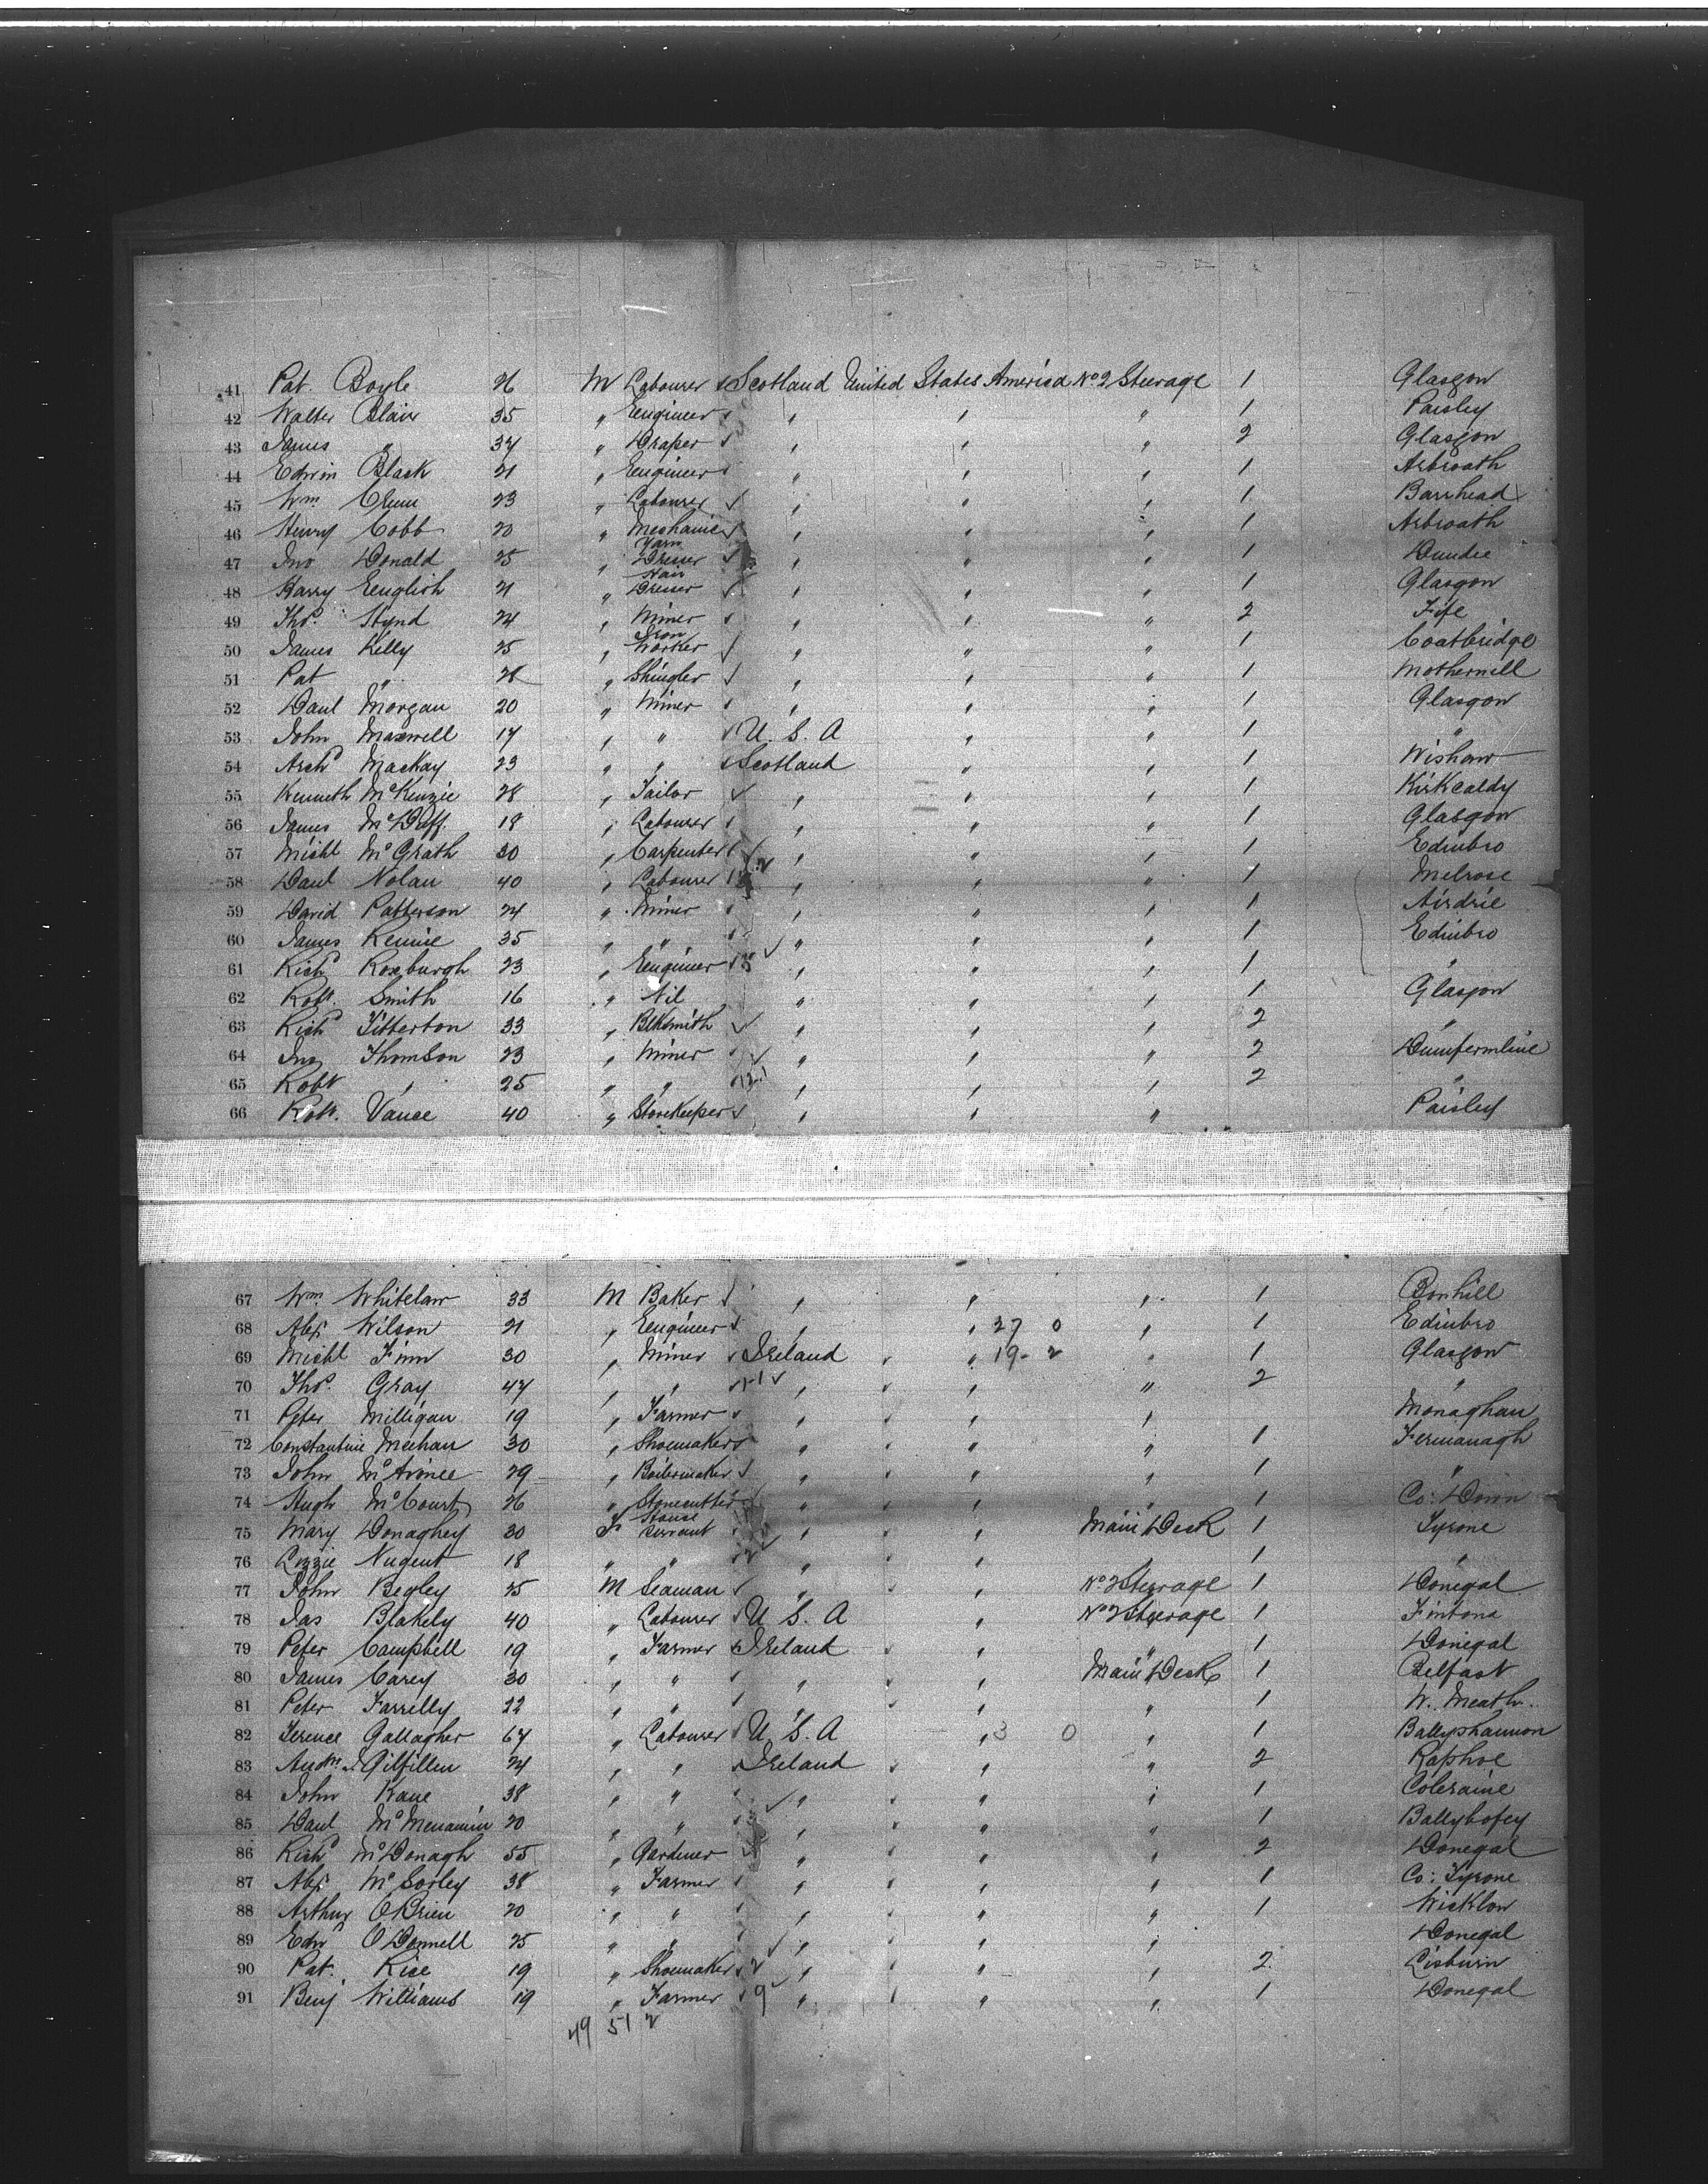 41 Pat. Boyle 26 M Labourer Scotland United States America No 2 Steerage 1 Glasgow
42 Walter Blair 35 " Engineer " " " 1 Paisley
43 James " 34 " Draper " " " 2 Glasgow
44 Edwin Black 21 " Engineer " " " 1 Arbroath
45 Wm 23 " Labourer " " " 1 Barrhead
46 Henry Cobb 20 " Mechanic " " " 1 Arbroath
47 Jno Donald 25 " Yarn Dresser " " " 1 Dundee
48 Harry English 21 " Hair Dresser " " " 1 Glasgow
49 Thos. Hynd 24 " Miner " " " 2 Fife
50 James Kelly 25 " Iron Worker " " " 1 Coatbridge
51 Pat " " Shingler " " " 1 Motherwell
52 Danl Morgan 20 " Miner " " " 1 Glasgow
53 John Maxwell 17 " " U. S. A " " 1 "
54 Archd Mackay 23 " " Scotland " " 1 Wishaw
55 Kenneth McKenzie 28 " Tailor " " " 1 Kirkcaldy
56 James McDuff. 18 " Labourer " " " 1 Glasgow
57 Michl McGrath 30 " Carpenter " " " 1 Edinbro
58 Danl Nolan 40 " Labourer " " " 1 Melrose
59 David Patterson 24 " Miner " " " 1 Airdrie
60 James Rennie 35 " " " " " 1 Edinbro
61 Richd Roxburgh 23 " Engineer " " " 1 "
62 Robt. Smith 16 " Nil " " " 1 Glasgow
63 Richd Titterton 33 " Blksmith " " " 2 "
64 Jno Thomson 23 " Miner " " " 2 Dumfermline
65 Robt " 25 " " " " " 2 "
66 Robt. Vance 40 " Storekeeper " " " Paisley
67 Wm. Whitelaw 33 M Baker " " " 1 Bonhill
68 Alex Wilson 21 " Engineer " " 27 0 " 1 Edinbro
69 Michl Finn 30 " Miner Ireland " 19 - 2 " 1 Glasgow
70 Thos. Gray 47 " " " " " 2 "
71 Peter Milligan 19 " Farmer " " " Monaghan
72 Constantine Meehan 30 " Shoemaker " " " 1 Fermanagh
73 John 29 " Boilermaker " " " 1 "
74 Hugh McCourt 26 " Stonecutter " " " 1 Co: Down
75 Mary Donaghey 30 F House Servant " " Main Deck 1 Tyrone
76 Lizzie Nugent 18 " " " " " 1 "
77 John Begley 25 M Seaman " " No 2 Steerage 1 Donegal
78 Jas Blakely 40 " Labourer U. S. A " No 2 Steerage 1 Fintona
79 Peter Campbell 19 " Farmer Ireland " " 1 Donegal
80 James Carey 30 " " " " Main Deck 1 Belfast
81 Peter Farrelly 22 " " " " " 1 W. Meath.
82 Terence Gallagher 67 " Labourer U. S. A " 3 0 " 1 Ballyshannon
83 Andw. Gilfillen 24 " " Ireland " " 2 Raphoe
84 John Kane 38 " " " " " 1 Coleraine
85 Danl McMenamin 20 " " " " " 1 Ballybofey
86 Richd McDonagh 55 " Gardener " " " 2 Donegal
87 Alex McSorley 38 " Farmer " " " 1 Co: Tyrone
88 Arthur O'Brien 20 " " " " " 1 Wicklow
89 Edwd O'Donnell 25 " " " " " Donegal
90 Pat. Rice 19 " Shoemaker " " " 2 Lisburn
91 Benj Williams 19 " Farmer " " " 1 Donegal
49 51 2